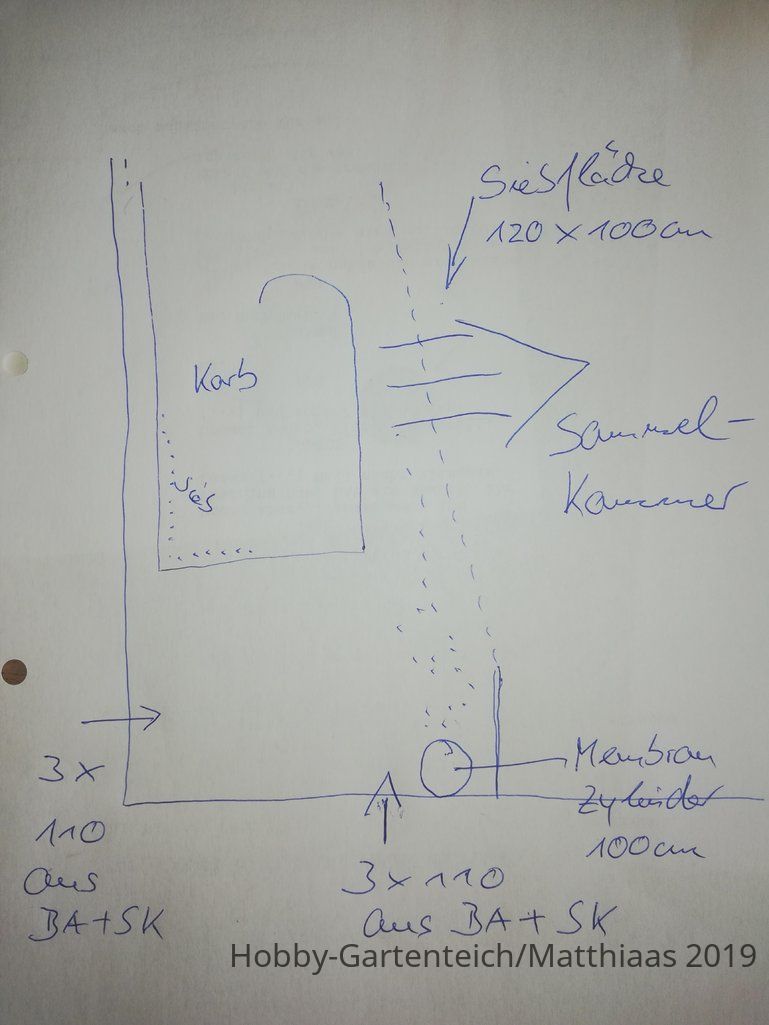 Siebfläche
120 x 100cm
Korb
Sammel-
Kammer
Membran
Zylinder
100cm
3x
110
aus
BA+SK
3x110
aus BA+SK
Hobby-Gartenteich/Matthiaas 2019